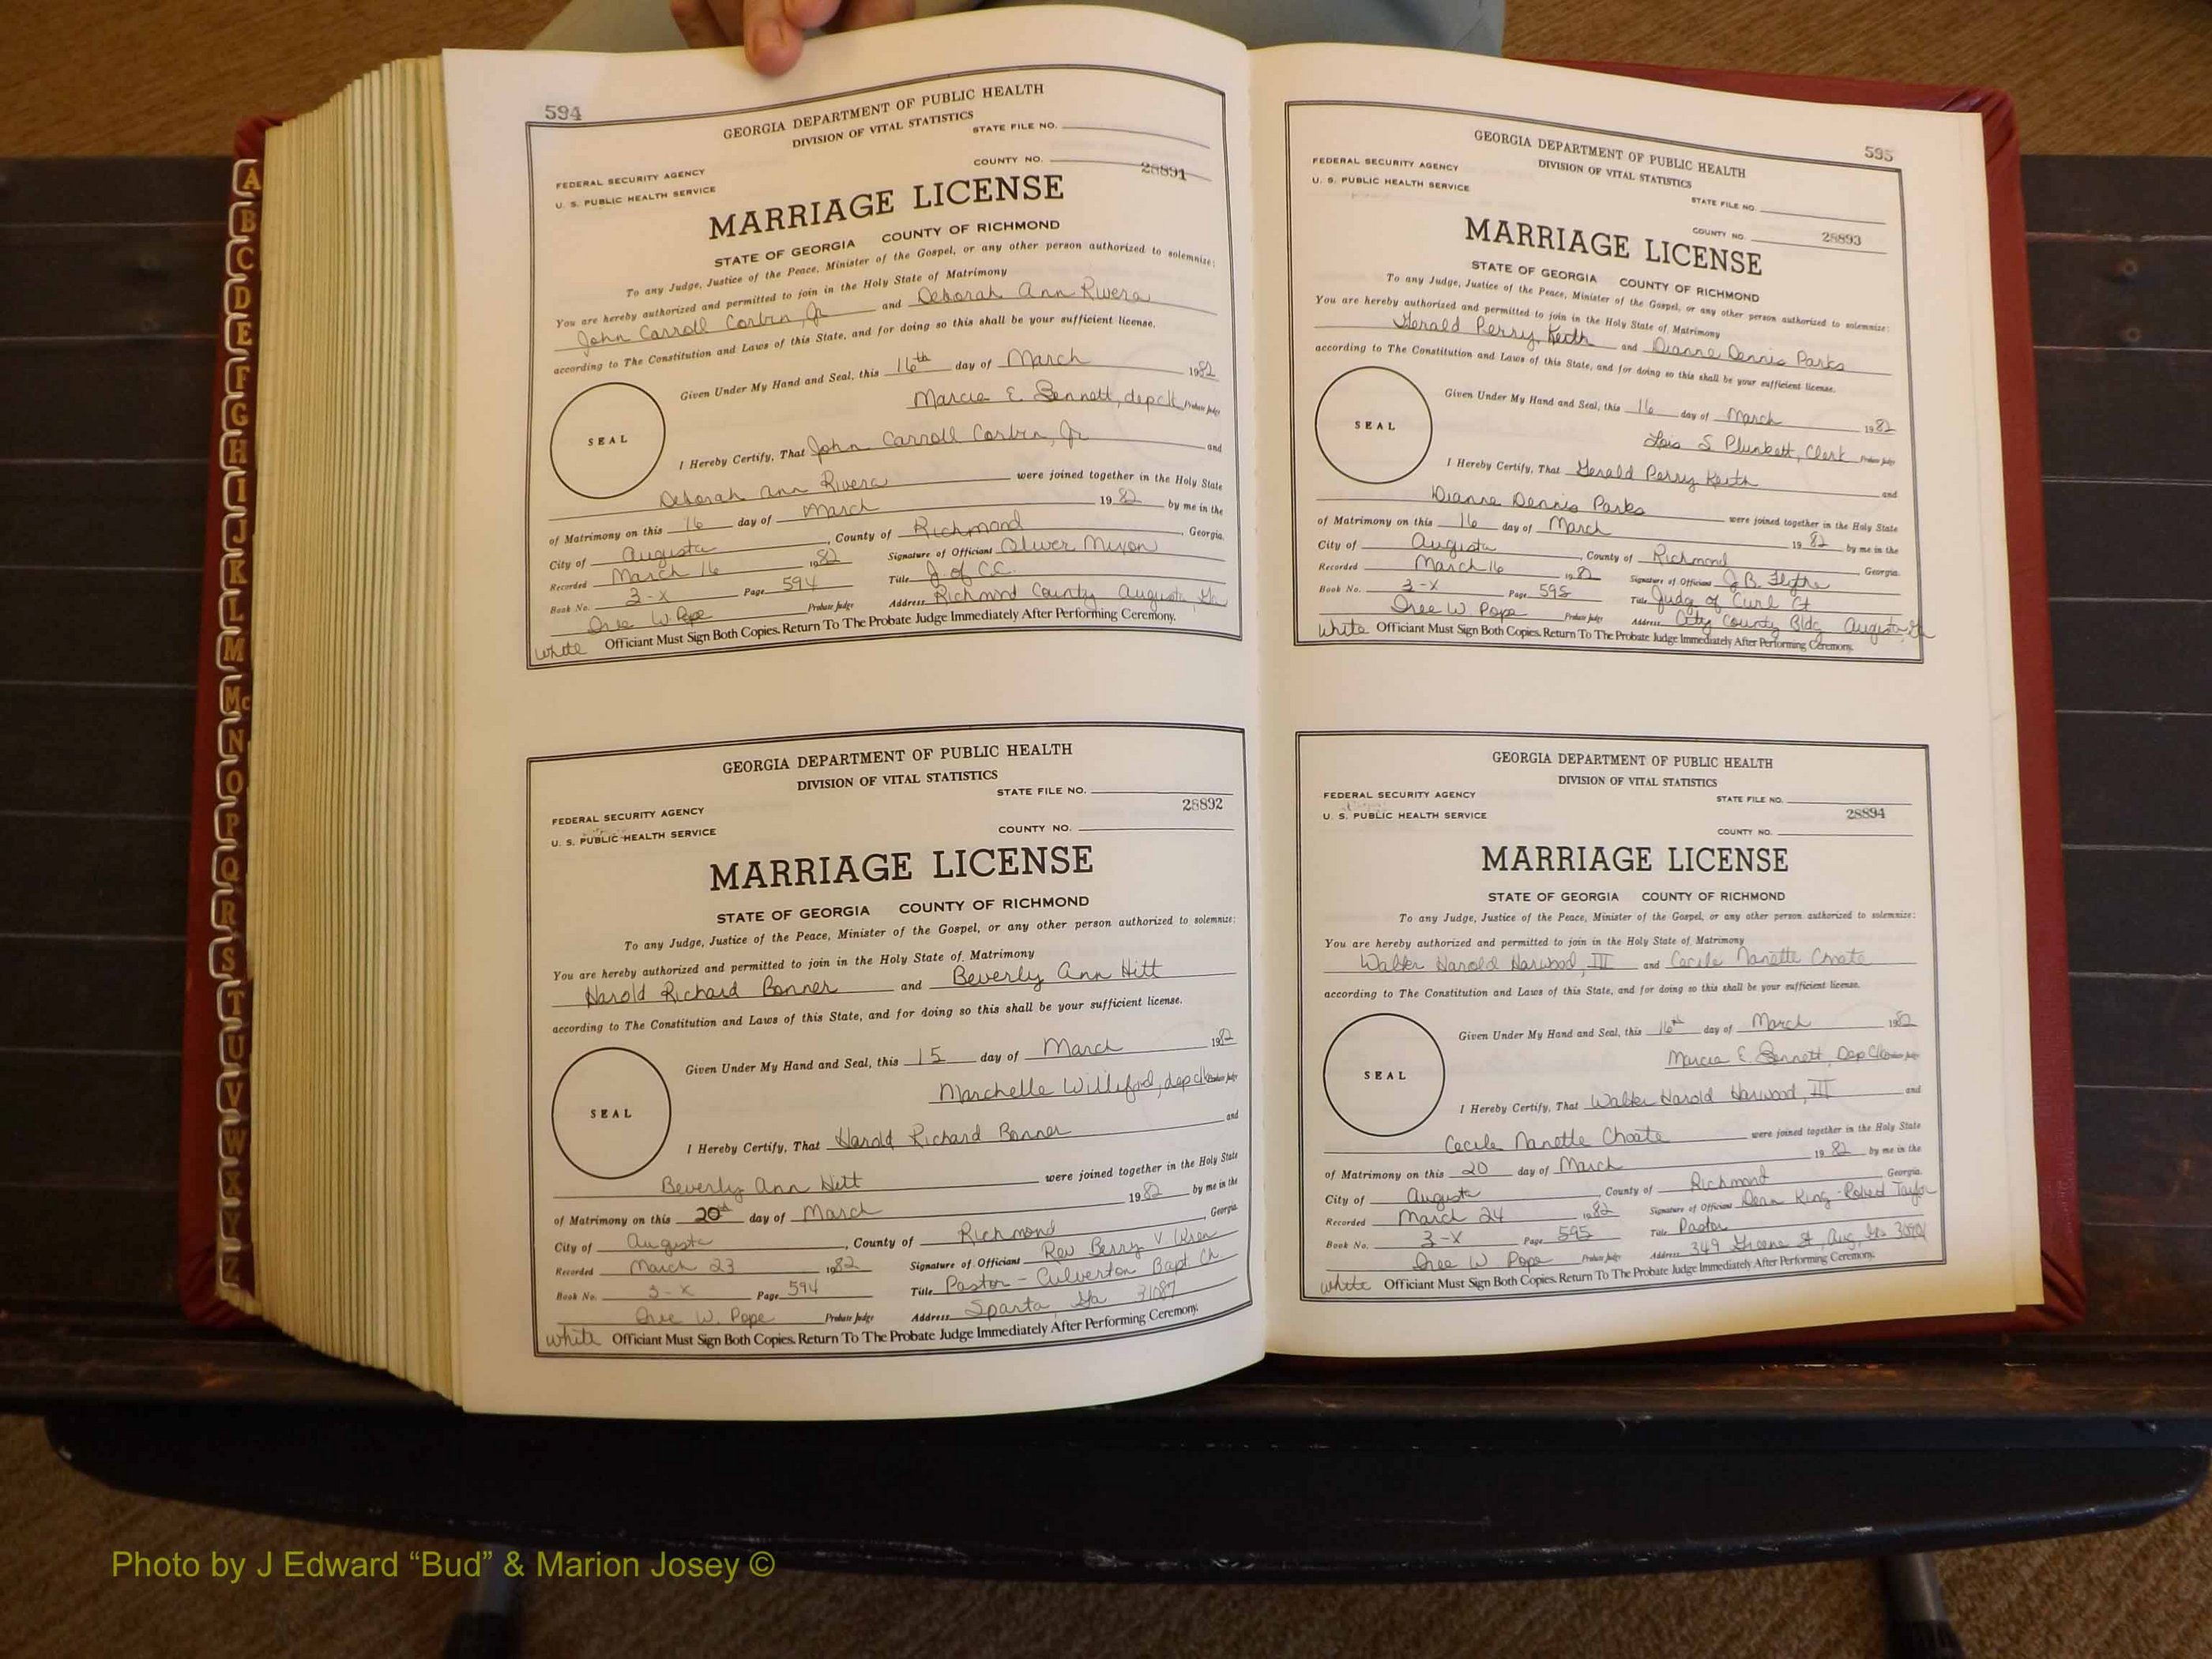 A
B
C
D
E
F
G
H
I
J
K
L
M
Mc
N
O
P
Q
R
S
T
U
V
W
X
Y
Z
594
GEORGIA DEPARTMENT OF PUBLIC HEALTH
DIVISION OF VITAL STATISTICS
STATE FILE NO.
FEDERAL SECURITY AGENCY
COUNTY NO. 28891
U. S. PUBLIC HEALTH SERVICE
MARRIAGE LICENSE
STATE OF GEORGIA COUNTY OF RICHMOND
To any Judge, Justice of the Peace, Minister of the Gospel, or any other person authorized to solemnize:
You are hereby authorized and permitted to join in the Holy State of Matrimony
John Carroll Corbin, Jr and Deborah Ann Rivera
according to The Constitution and Laws of this State, and for doing so this shall be your sufficient license.
Given Under My Hand and Seal, this 16th day of March 1982
Marcia E. Bennett, dep clk Probate Judge
SEAL
I Hereby Certify, That John Carroll Corbin, Jr and
Deborah Ann Rivera were joined together in the Holy State
of Matrimony on this 16 day of March 1982 by me in the
City of Augusta, County of Richmond, Georgia.
Recorded March 16 1982 Signature of Officiant Oliver Mixon
Book No. 3-X Page 594 Title J. of C.C.
W. Pope Probate Judge Address Richmond County Augusta, Ga
white Officiant Must Sign Both Copies. Return To The Probate Judge Immediately After Performing Ceremony.
GEORGIA DEPARTMENT OF PUBLIC HEALTH
DIVISION OF VITAL STATISTICS
STATE FILE NO.
FEDERAL SECURITY AGENCY
28892
U. S. PUBLIC HEALTH SERVICE
COUNTY NO.
MARRIAGE LICENSE
STATE OF GEORGIA COUNTY OF RICHMOND
To any Judge, Justice of the Peace, Minister of the Gospel, or any other person authorized to solemnize:
You are hereby authorized and permitted to join in the Holy State of Matrimony
Harold Richard Bonner and Beverly Ann Hitt
according to The Constitution and Laws of this State, and for doing so this shall be your sufficient license.
Given Under My Hand and Seal, this 15 day of March 1982
Marchelle Williford, dep clk Probate Judge
SEAL
I Hereby Certify, That Harold Richard Bonner and
Beverly Ann Hitt were joined together in the Holy State
of Matrimony on this 20th day of March 1982 by me in the
City of Augusta, County of Richmond, Georgia.
Recorded March 23 1982 Signature of Officiant Rev Berry V.
Book No. 3-X Page 594 Title Pastor - Culverton Bapt Ch
W. Pope Probate Judge Address Sparta, Ga 31087
white Officiant Must Sign Both Copies. Return To The Probate Judge Immediately After Performing Ceremony.
595
GEORGIA DEPARTMENT OF PUBLIC HEALTH
DIVISION OF VITAL STATISTICS
FEDERAL SECURITY AGENCY
U. S. PUBLIC HEALTH SERVICE
STATE FILE NO.
COUNTY NO. 28893
MARRIAGE LICENSE
STATE OF GEORGIA COUNTY OF RICHMOND
To any Judge, Justice of the Peace, Minister of the Gospel, or any other person authorized to solemnize:
You are hereby authorized and permitted to join in the Holy State of Matrimony
Gerald Perry Keith and Dianne Dennis Parks
according to The Constitution and Laws of this State, and for doing so this shall be your sufficient license.
Given Under My Hand and Seal, this 16 day of March 1982
Lois S Plunkett, Clerk Probate Judge
SEAL
I Hereby Certify, That Gerald Perry Keith and
Dianne Dennis Parks were joined together in the Holy State
of Matrimony on this 16 day of March 1982 by me in the
City of Augusta, County of Richmond, Georgia.
Recorded March 16 1982 Signature of Officiant J. B.
Book No. 3-X Page 595 Title Judg of Ct
W. Pope Probate Judge Address City County Bldg Augusta, Ga
White Officiant Must Sign Both Copies. Return To The Probate Judge Immediately After Performing Ceremony.
GEORGIA DEPARTMENT OF PUBLIC HEALTH
DIVISION OF VITAL STATISTICS
FEDERAL SECURITY AGENCY
STATE FILE NO.
U. S. PUBLIC HEALTH SERVICE
28894
COUNTY NO.
MARRIAGE LICENSE
STATE OF GEORGIA COUNTY OF RICHMOND
To any Judge, Justice of the Peace, Minister of the Gospel, or any other person authorized to solemnize:
You are hereby authorized and permitted to join in the Holy State of Matrimony
Walter Harold Harwood, III and Cecile Nanette Choate
according to The Constitution and Laws of this State, and for doing so this shall be your sufficient license.
Given Under My Hand and Seal, this 16th day of March 1982
Marcia E. Bennett, Dep Clk Probate Judge
SEAL
I Hereby Certify, That Walter Harold Harwood, III and
Cecile Nanette Choate were joined together in the Holy State
of Matrimony on this 20 day of March 1982 by me in the
City of Augusta, County of Richmond, Georgia.
Recorded March 24 1982 Signature of Officiant King - Robert Taylor
Book No. 3-X Page 595 Title Pastor
W Pope Probate Judge Address 349 Greene St, Aug, Ga 30901
white Officiant Must Sign Both Copies. Return To The Probate Judge Immediately After Performing Ceremony.
Photo by J Edward “Bud” & Marion Josey ©